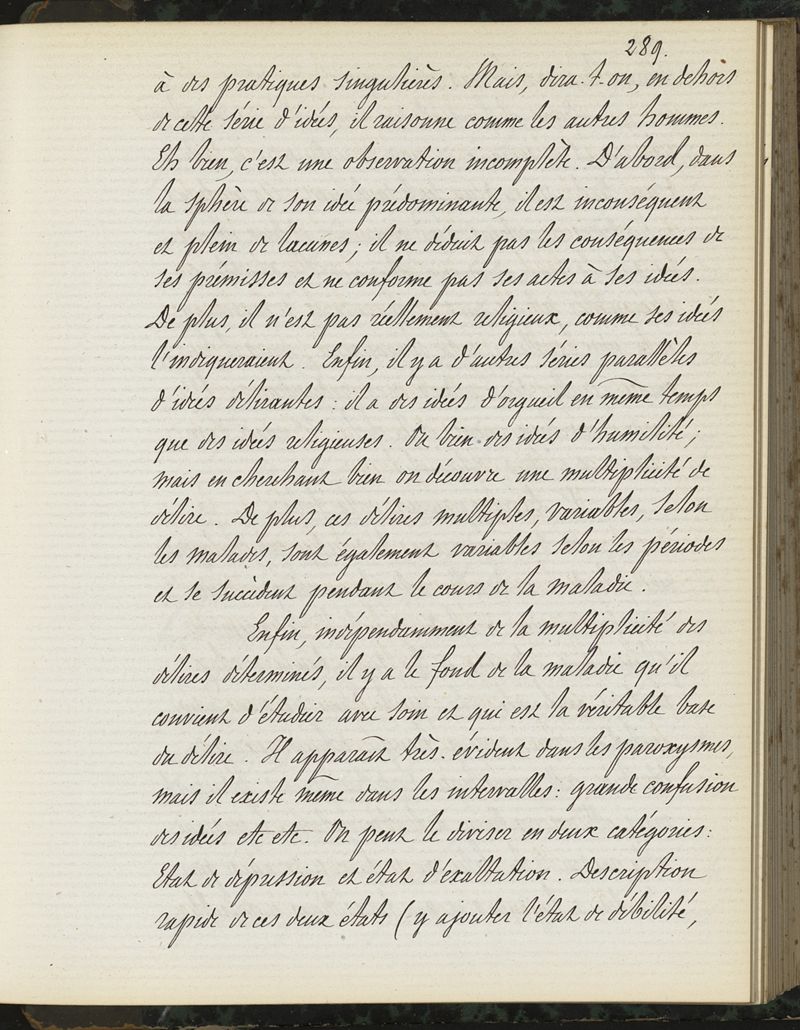 289.
à des pratiques singulières. Mais, dira-t-on, en dehors
de cette série d'idées, il raisonne comme les autres hommes.
Eh bien, c'est une observation incomplète. D'abord, dans
la sphère de son idée prédominante, il est inconséquent
et plein de lacunes; il ne déduit pas les conséquences de
ses prémisses et ne conforme pas ses actes à ses idées.
De plus, il n'est pas réellement religieux, comme ses idées
l'indiqueraient. Enfin, il y a d'autres séries parallèles
d'idées délirantes: il a des idées d'orgueil en même temps
que des idées religieuses. Ou bien des idées d'humilité;
mais en cherchant bien on découvre une multiplicité de
délire. De plus, ces délires multiples, variables, selon
les malades, sont également variables selon les périodes
et se succèdent pendant le cours de la maladie.
Enfin, indépendamment de la multiplicité des
délires déterminés, il y a le fond de la maladie qu'il
convient d'étudier avec soin et qui est la véritable base
du délire. Il apparaît très-évident dans les paroxysmes,
mais il existe même dans les intervalles: grande confusion
des idées etc etc. On peut le diviser en deux catégories:
Etat de dépression et état d'exaltation. Description
rapide de ces deux états (y ajouter l'état de débilité,